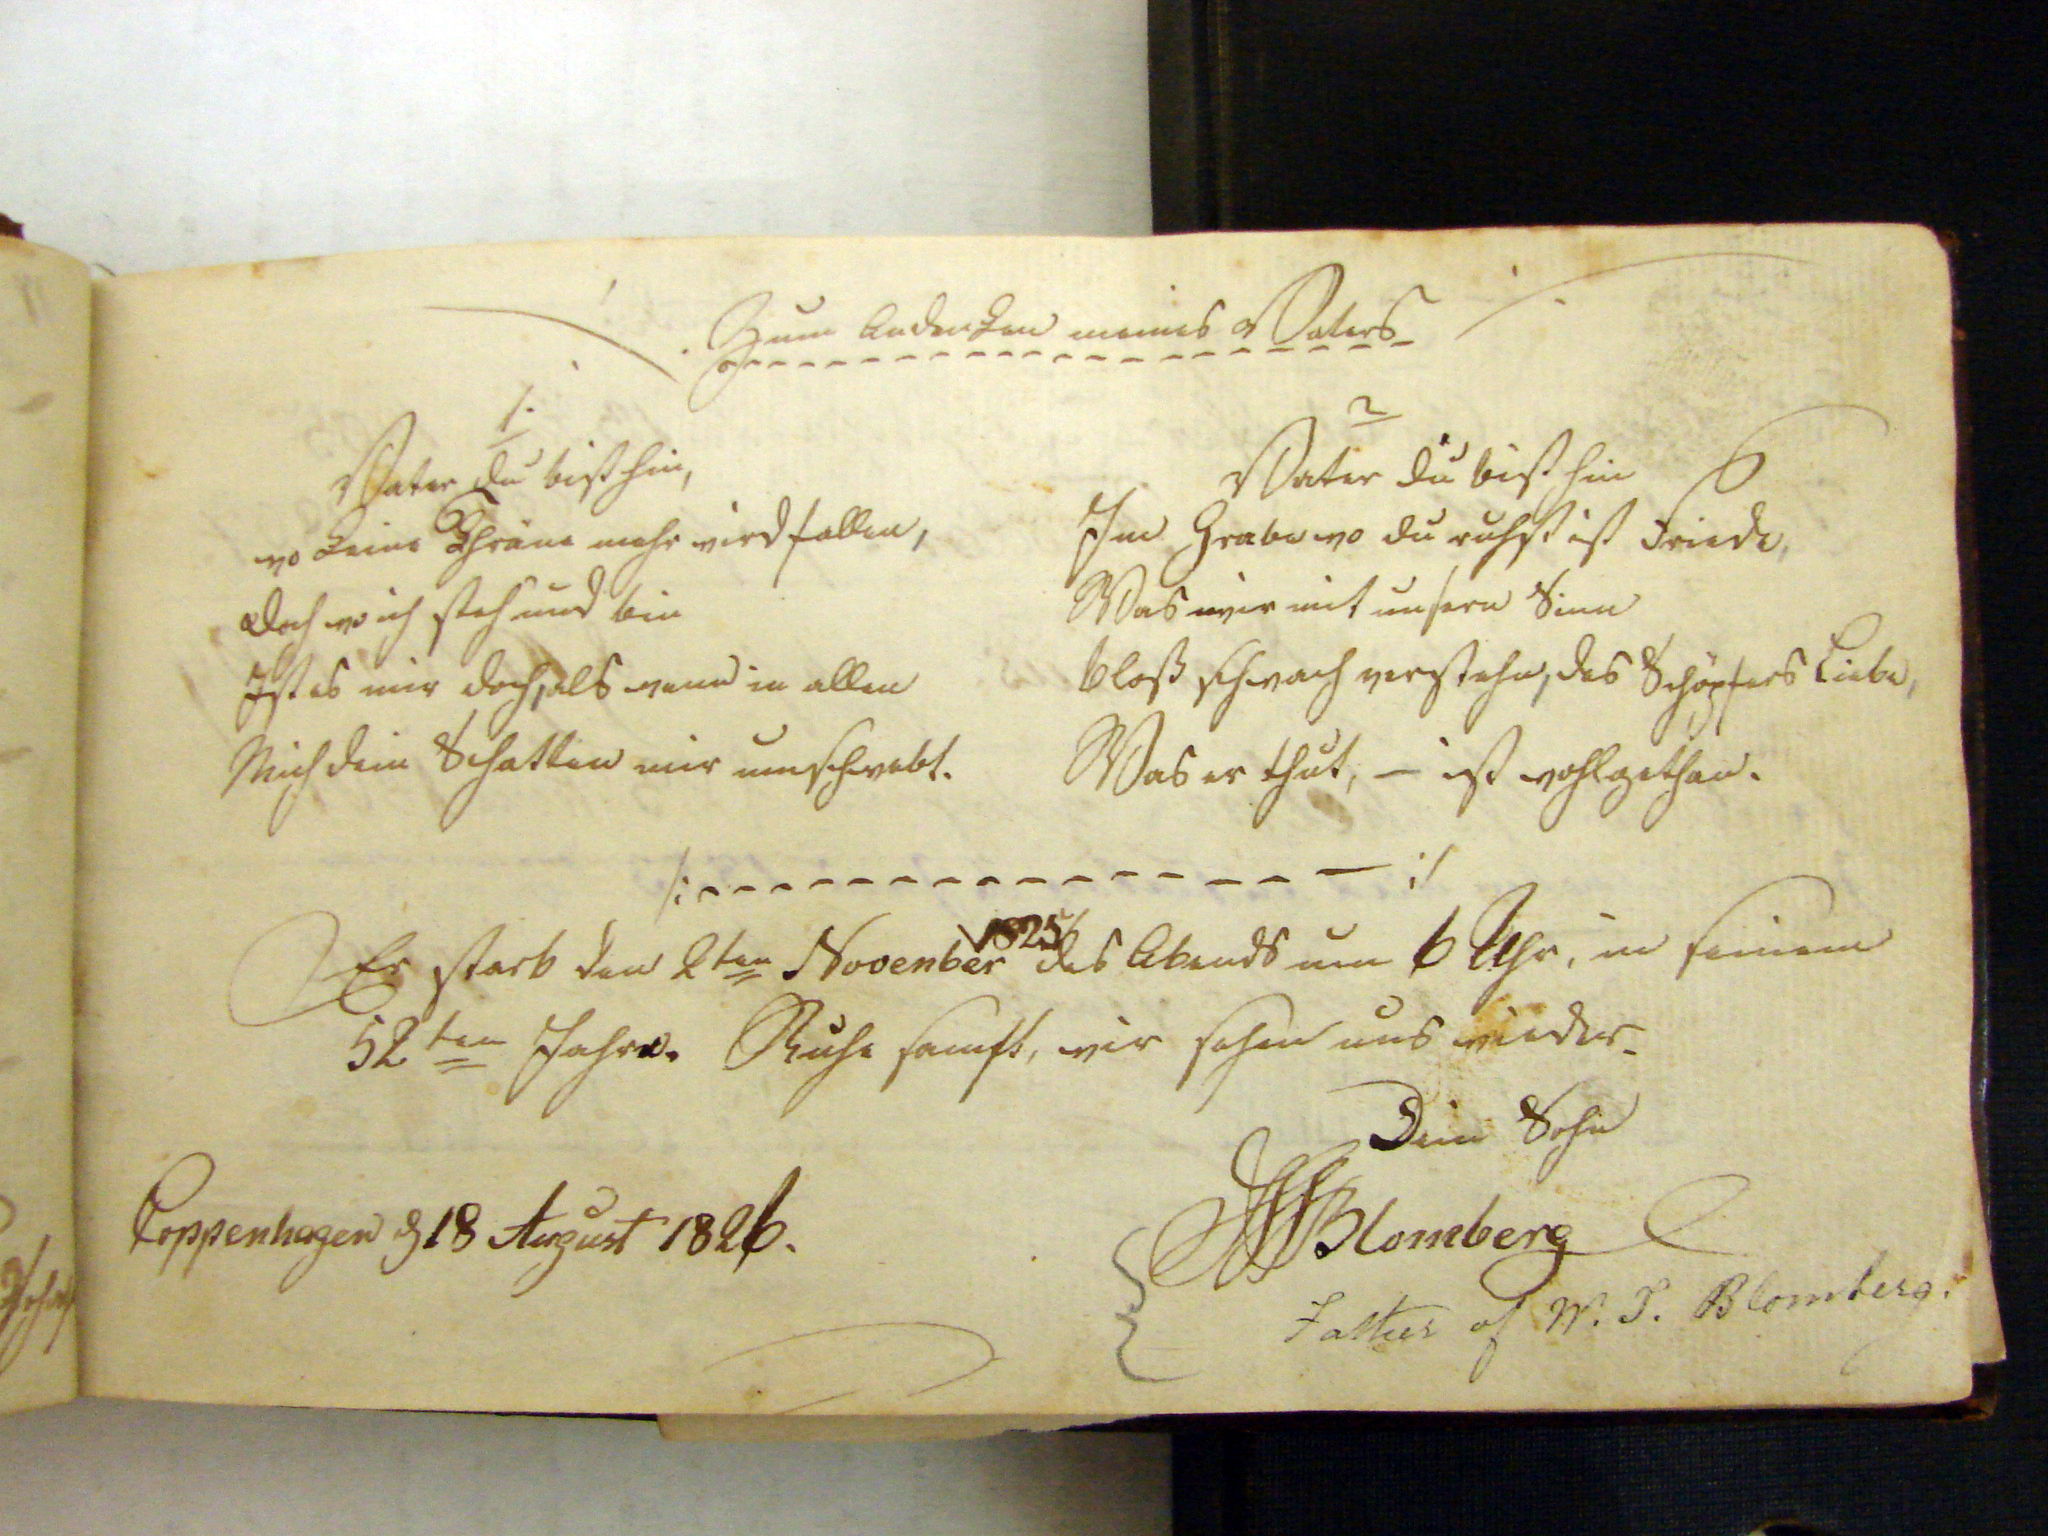 Zum Andenken meines Vaters
1.
Vater du bist hin,
wo keine Thräne mehr wird fallen,
doch wo ich steh und bin
Ist es mir doch, als wenn in allen
Mich dein Schatten mir umschwebt.
2
Vater du bist hin
Im Grabe wo du ruhst ist Friede,
Was wir mit unsern Sinn
bloß schwach verstehn, des Schöpfers Liebe,
Was er thut, – ist wohlgethan.
1825
Er starb den 2ten November des Abends um 6 Uhr, in seinem
52ten Jahre. Ruhe sanft, wir sehen uns wieder.
Dein Sohn
Coppenhagen d 18 August 1826.
Blomberg
Father of W. T. Blomberg.